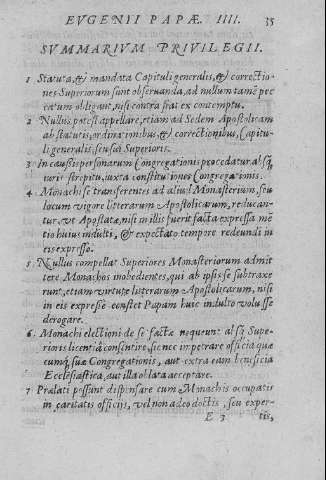 EVGENII PAPÆ. IIII. 35
SVMMARIVM PRIVILEGII.
1 Statuta, & mandata Capituli generalis, & correctio-
nes Superiorum sunt obseruanda, ad nullum tamē pec
catum obligant, nisi contra fiat ex contemptu.
2 Nullus potest appellare, etiam ad Sedem Apostolicam
ab statutis, ordinationibus, & correctionibus, Capitu-
li generalis, seu sui Superioris.
3 In caussis personarum Congregationis procedatur absq́
strepitu, iuxta constitutiones Congregationis.
4 Monachi se transferentes ad aliud Monasterium, seu
locum vigore litterarum Apostolicarum, reducan-
tur, vt Apostatæ, nisi in illis fuerit facta expressa mē
tio huius indulti, & expectato tempore redeundi in
eis expresso.
5 Nullus compellat Superiores Monasteriorum admit
tere Monachos inobedientes, qui ab ipsis se subtraxe
runt, etiam virtute litterarum Apostolicarum, nisi
in eis expresse constet Papam huic indulto voluisse
derogare.
6 Monachi electioni de se factæ nequeunt absq́ Supe-
rioris licentia consentire, sicnec impetrare officia quæ
cumq́ suæ Congregationis, aut extra eam beneficia
Ecclesiastica, aut illa oblata acceptare.
7 Prælati possunt dispensare cum Monachis occupatis
in caritatis officijs, vel non adeo doctis, seu exper-
E 3 tis,